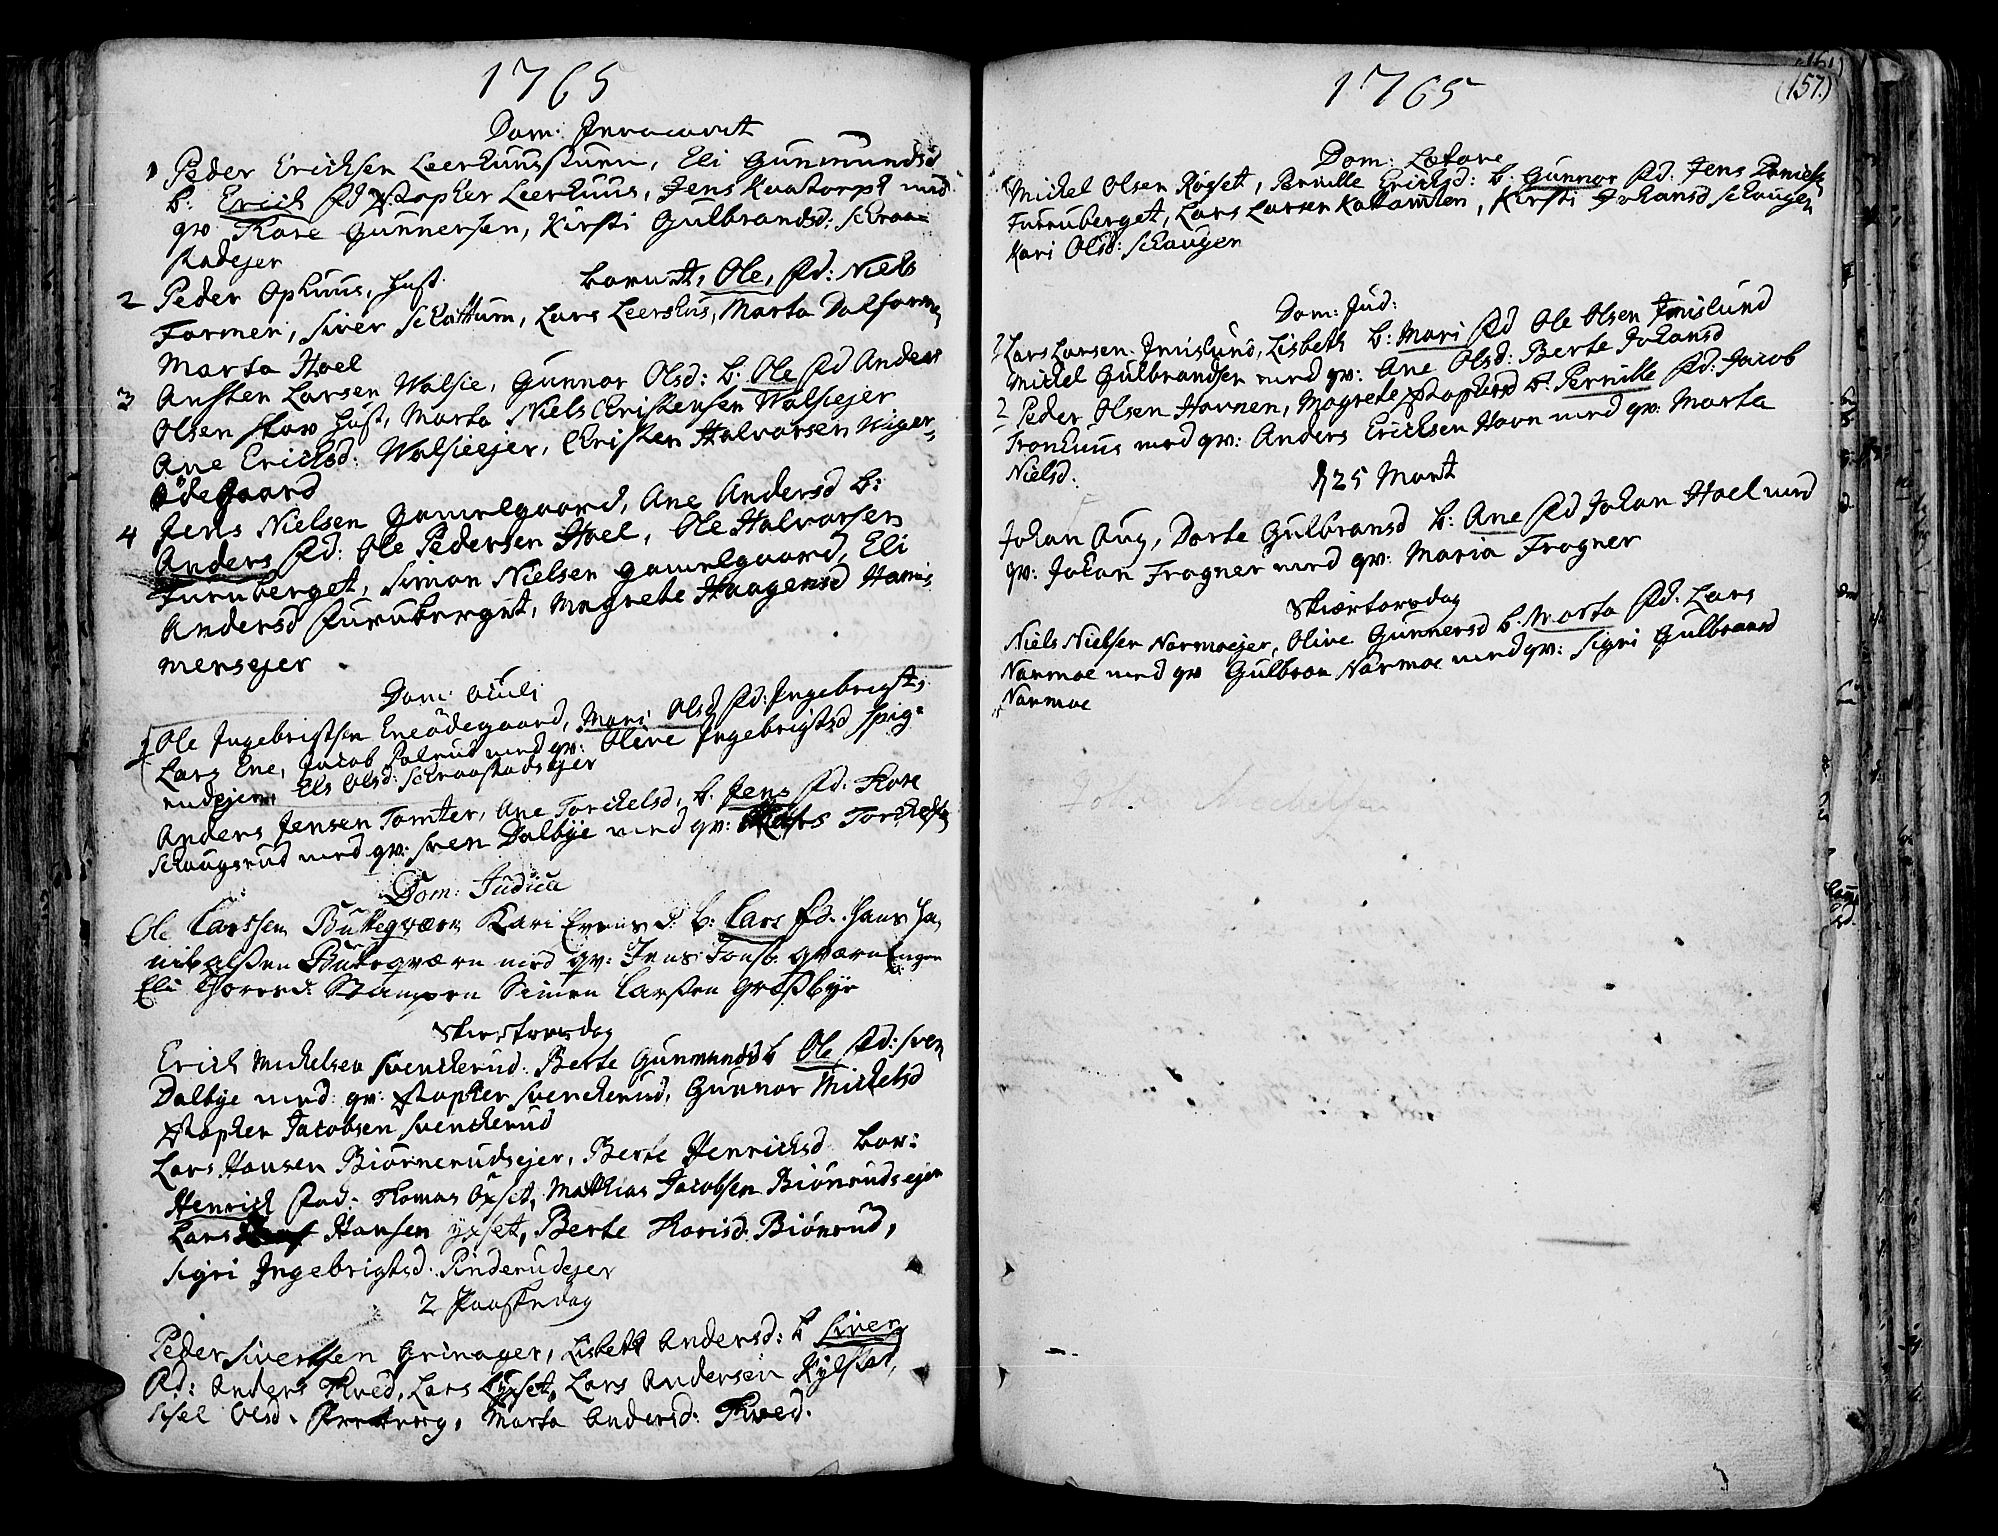 1765
Dom: Invocavit
1 Peder Ericksen Leerhuusstuen, Eli Gunmundsd
b: Erich fd Xstopher Leerhuus, Jens Kaatorp med
qv Thore Gunnersen, Kirsti Gulbrandsd: Schraa-
stadejer
2 Peder Ophuus, hust barnet, Ole, fd: Niels
Formen, Siver Schattum, Lars Leershus, Marta Dalformen
Marta Hoel
3 Ansten Larsen Walsie, Gunnor Olsd: b: Ole fd Anders
Olsen Skov hust, Marta Niels Christensen Walsiejer
Ane Ericksd: Walsieejer, Christen Halvorsen Niger-
ödegaard
4 Jens Nielsen gamelgaard, Ane Andersd b:
Anders fd: Ole Pedersen Hoel, Ole Halvorsen
Furuberget, Simon Nielsen gamelgaard, Eli
Andersd furuberget, Magrete Haagensd Ham-
mersejer
Dom: Oculi
Ole Ingebrigtsen Eneödegaard, Mari Olsd fd: Ingebrigt,
Lars Ene, Jacob Solrud med qv: Olive Ingebrigtsd Spig-
rudejer, Els Olsd: Schraastadsejer
Anders Jensen Tomter, Ane Torchelsd, b. Jens fd: Thore
Schougsrud med qv: Sven Dalbye med qv: Torchelsen
Dom: Judica
Ole Larssen Büttegværn Kari Evensd. b: Lars fd. Hans Ha-
nibalssen Büttegværn med qv: Jens Jonsb. gværnEngen
Eli Thoresd: Stampen Simen Larssen Grøssbye
Skiertorsdag
Erich Michelsen Svencherud. Berte Gunmundsd b Ole fd: Sven
Dalbye med: qv: Xstopher Svencherud, Gunnor Michelsd
Xstopher Jacobsen Svencherud
Lars Hansen Biørnerudsejer, Berte Henrichsd bar:
Henrich fad: Thomas Öxset, Mathias Jacobsen Biönrudsejer
Lars Hansen yxset, Berte Thorisd. Biönrud,
Sigri Ingebrigtsd. Pinderudejer
2 Paaskedag
Peder Sivertsen Grinager, Lisbett Andersd: b Siver
fd: Anders Thved, Lars Lyxset, Lars Andersen Kylstad,
Sisel Olsd. Marta Andersd: Thved.
1765
(157.)
Dom: Lætare
Michel Olsen Røset, Pernille Ericksd: b: Gunnor fd. Jens
Furuberget, Lars Larsen Kattamlen, Kirsti Johansd Schaugen
Kari Olsd: Schaugen
Dom: Jud:
1 Lars Larsen Imislund, Lisbeth b: Mari fd Ole Olsen Imislund
Michel Gulbrandsen med qv: Ane Olsd: Berte Johansd
2 Peder Olsen Hovnen, Magrete Xstophersd b: Pernille fd: Jacob
Fronhuus med qv: Anders Ericksen Hovn med qv: Marta
Nielsd.
d 25 Mart
Johan Aug, Dorte Gulbransd b: Ane fd Johan Hoel med
qv: Johan Frogner med qv: Maria Frogner
Skiærtorsdag
Niels Nielsen Narmoejer, Olive Gunnersd b. Marta fd: Lars
Narmoe med qv Gulbran Narmoe med qv: Sigri Gulbransd
Narmoe